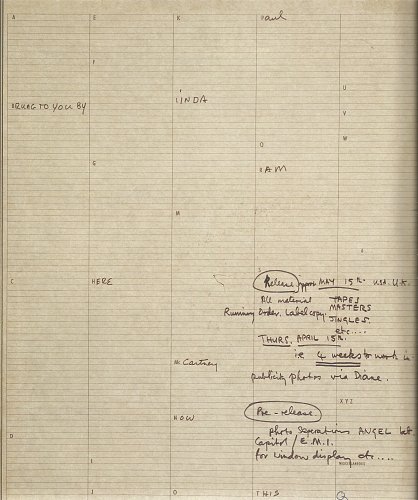 A E K Paul
F
U
BRUNG TO YOU BY LINDA
V
W
G O
RAM
M
C HERE Release appx MAY 15th. U.S.A. U.K.
All material TAPES
Running Order. Label copy. MASTERS
JINGLES.
etc....
THURS. APRIL 15th.
ie 4 weeks to work in
Mc Cartney
publicity photos via Diane.
XYZ
HOW Pre-release
photo Seperations ANGEL
D
Capitol / E.M.I.
MISCELLANEOUS
for window display etc....
I J THIS Q